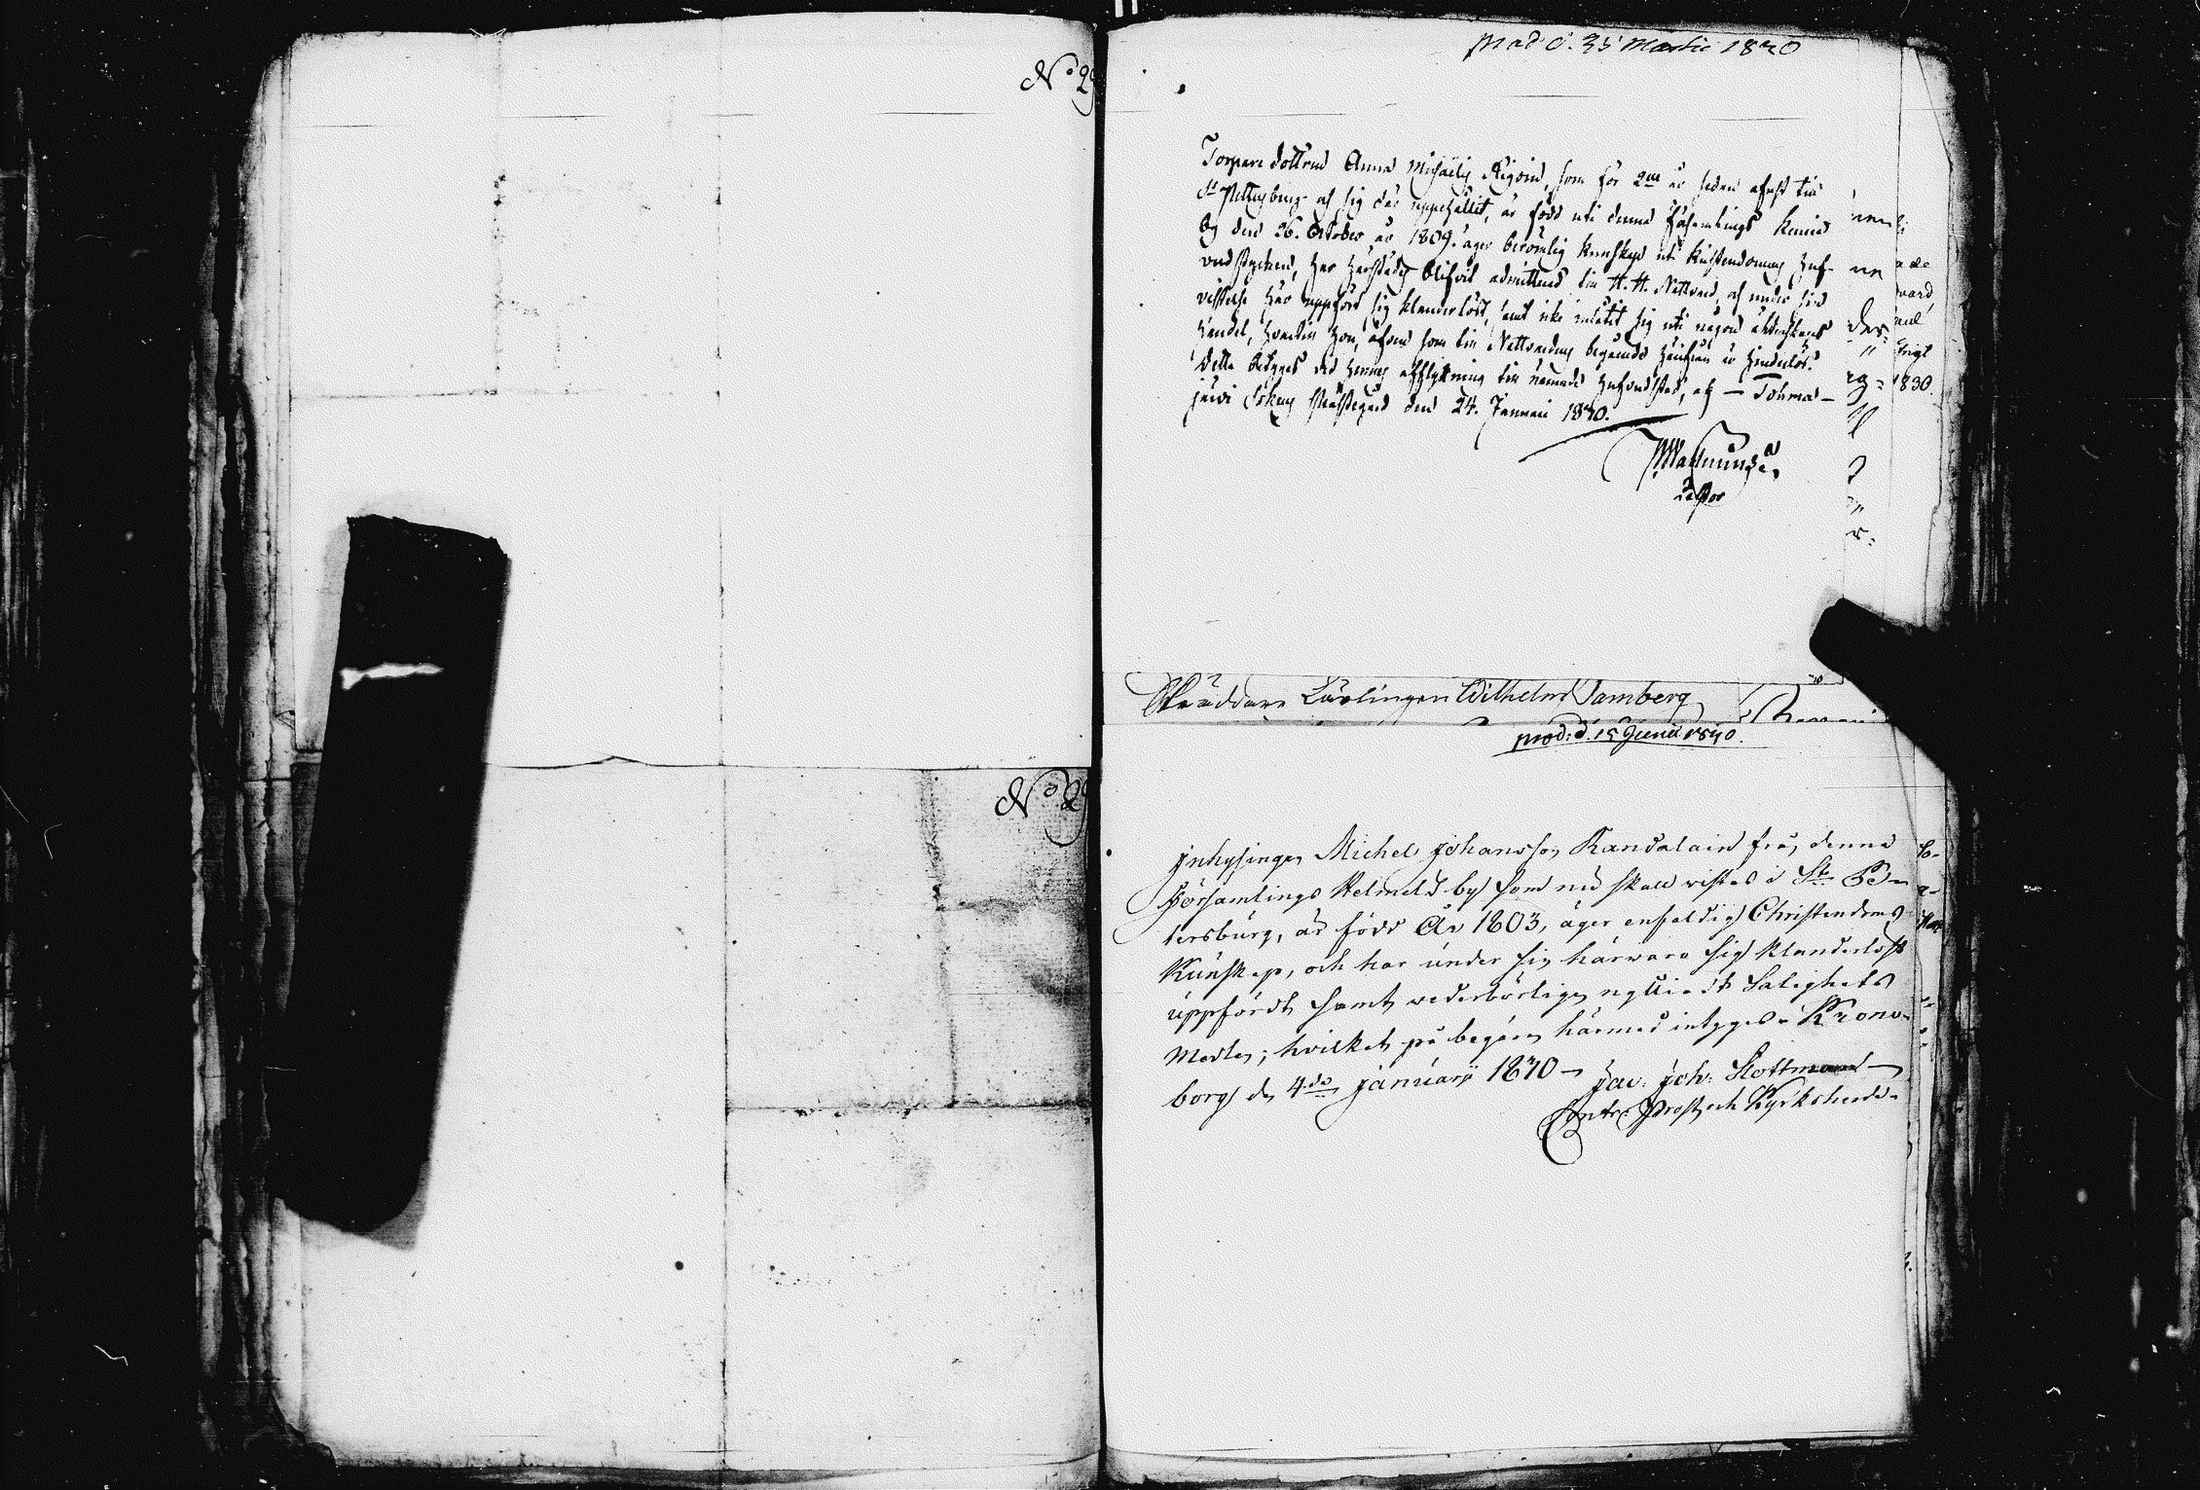 No 29
Prod d. 31 Martii 1830
Torpare dottren Anna Michaëlis Rigoin, som för 2ne år sedan afrest till
St Pettersburg och sig där uppehållit, är född uti denna församlings Kemie
By den 26. October år 1809. äger berömlig kunskap uti Kristendomens huf-
vudstycken, har härstädes blifvit admitterad till H. H. Nattvard, och under sin
vistelse här uppfört sig klanderlöst, samt icke inlåtit sig uti någon äktenskaps
handel, hvartill hon, äfven som till Nattvardens begående härifrån är hinderlös.
Detta betygas vid hennes afflyttning till nämnde hufvudstad, af — Tohma-
järvi Sokens Prästegård den 24. Januari 1830.
Pastor
Skräddare Lärlingen Wilhelm Tamberg
prod: d. 15 Junii 1830.
No 29
Inhysingen Michel Johansson Kandalain från denna
Församlings Kelmelä by som nu skall vistas i St. Pe-
tersburg, är född År 1803, äger enfaldig Christendoms
Kunskap, och har under sin härvaro sig klanderlöst
uppfördt samt vederbörligen nyttjadt Salighets
Medlen; hvilket på begäran härmed intygas. Krono-
borg den 4de Januarii 1830 —
Jac: Joh: Slottman
Contr: Prost och Kyrkoherde.
1830.